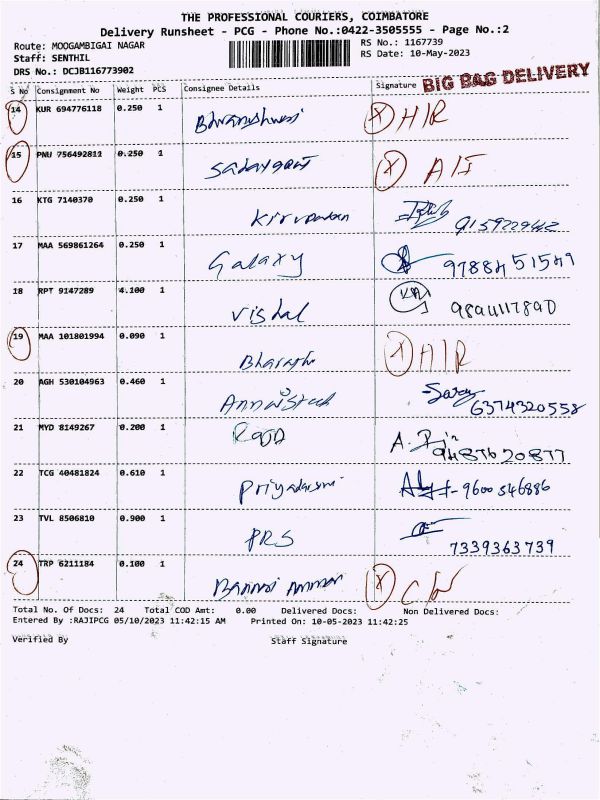 THE PROFESSIONAL COURIERS, COIMBATORE
Delivery Runsheet - PCG - Phone No.:0422-3505555 - Page No.:2
Route: MOOGAMBIGAI NAGAR
RS No.: 1167739
Staff: SENTHIL
RS Date: 10-May-2023
DRS No.: DCJB116773902
BIG BAG DELIVERY
S No Consignment No Weight PCS Consignee Details Signature
14 KUR 694776118 0.250 1
X H/R
15 PNU 756492811 0.250 1
X A/I
16 KTG 7140370 0.250 1
17 MAA 569861264 0.250 1
Galaxy
18 RPT 9147289 4.100 1
Vishal
19 MAA 101801994 0.090 1
Bharath X H/R
20 AGH 530104963 0.460 1
6374320558
21 MYD 8149267 0.200 1
22 TCG 40481824 0.610 1
9600546886
23 TVL 8506810 0.900 1
PRS 7339363739
24 TRP 6211184 0.100 1
X
Total No. Of Docs: 24 Total COD Amt: 0.00 Delivered Docs: Non Delivered Docs:
Entered By :RAJIPCG 05/10/2023 11:42:15 AM Printed On: 10-05-2023 11:42:25
Verified By Staff Signature